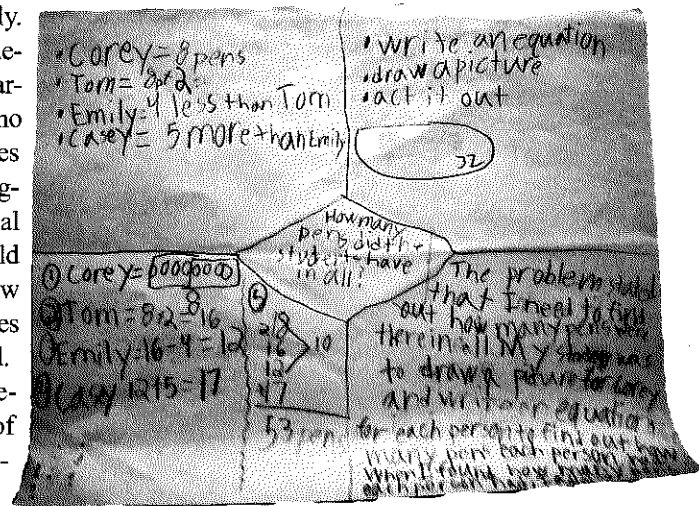 ly.
e-
ar-
no
es
g-
al
ld
w
es
l.
e-
of
-
• Corey = 8 pens
• Tom = 8x2
• Emily = 4 less than Tom
• Casey = 5 more than Emily
• write an equation
• draw a picture
• act it out
32
How many
pens did the
students have
in all?
① Corey = 00000000
8
② Tom = 8x2=16
Emily=16-4=12
Casey 12+5=17
16
12
10
53 pens
The problem
that I need to find
out how many pens
there in all My
to draw a picture for Corey
and write an equation
for each person to find out how
many pens each person
When I found how many
each person had